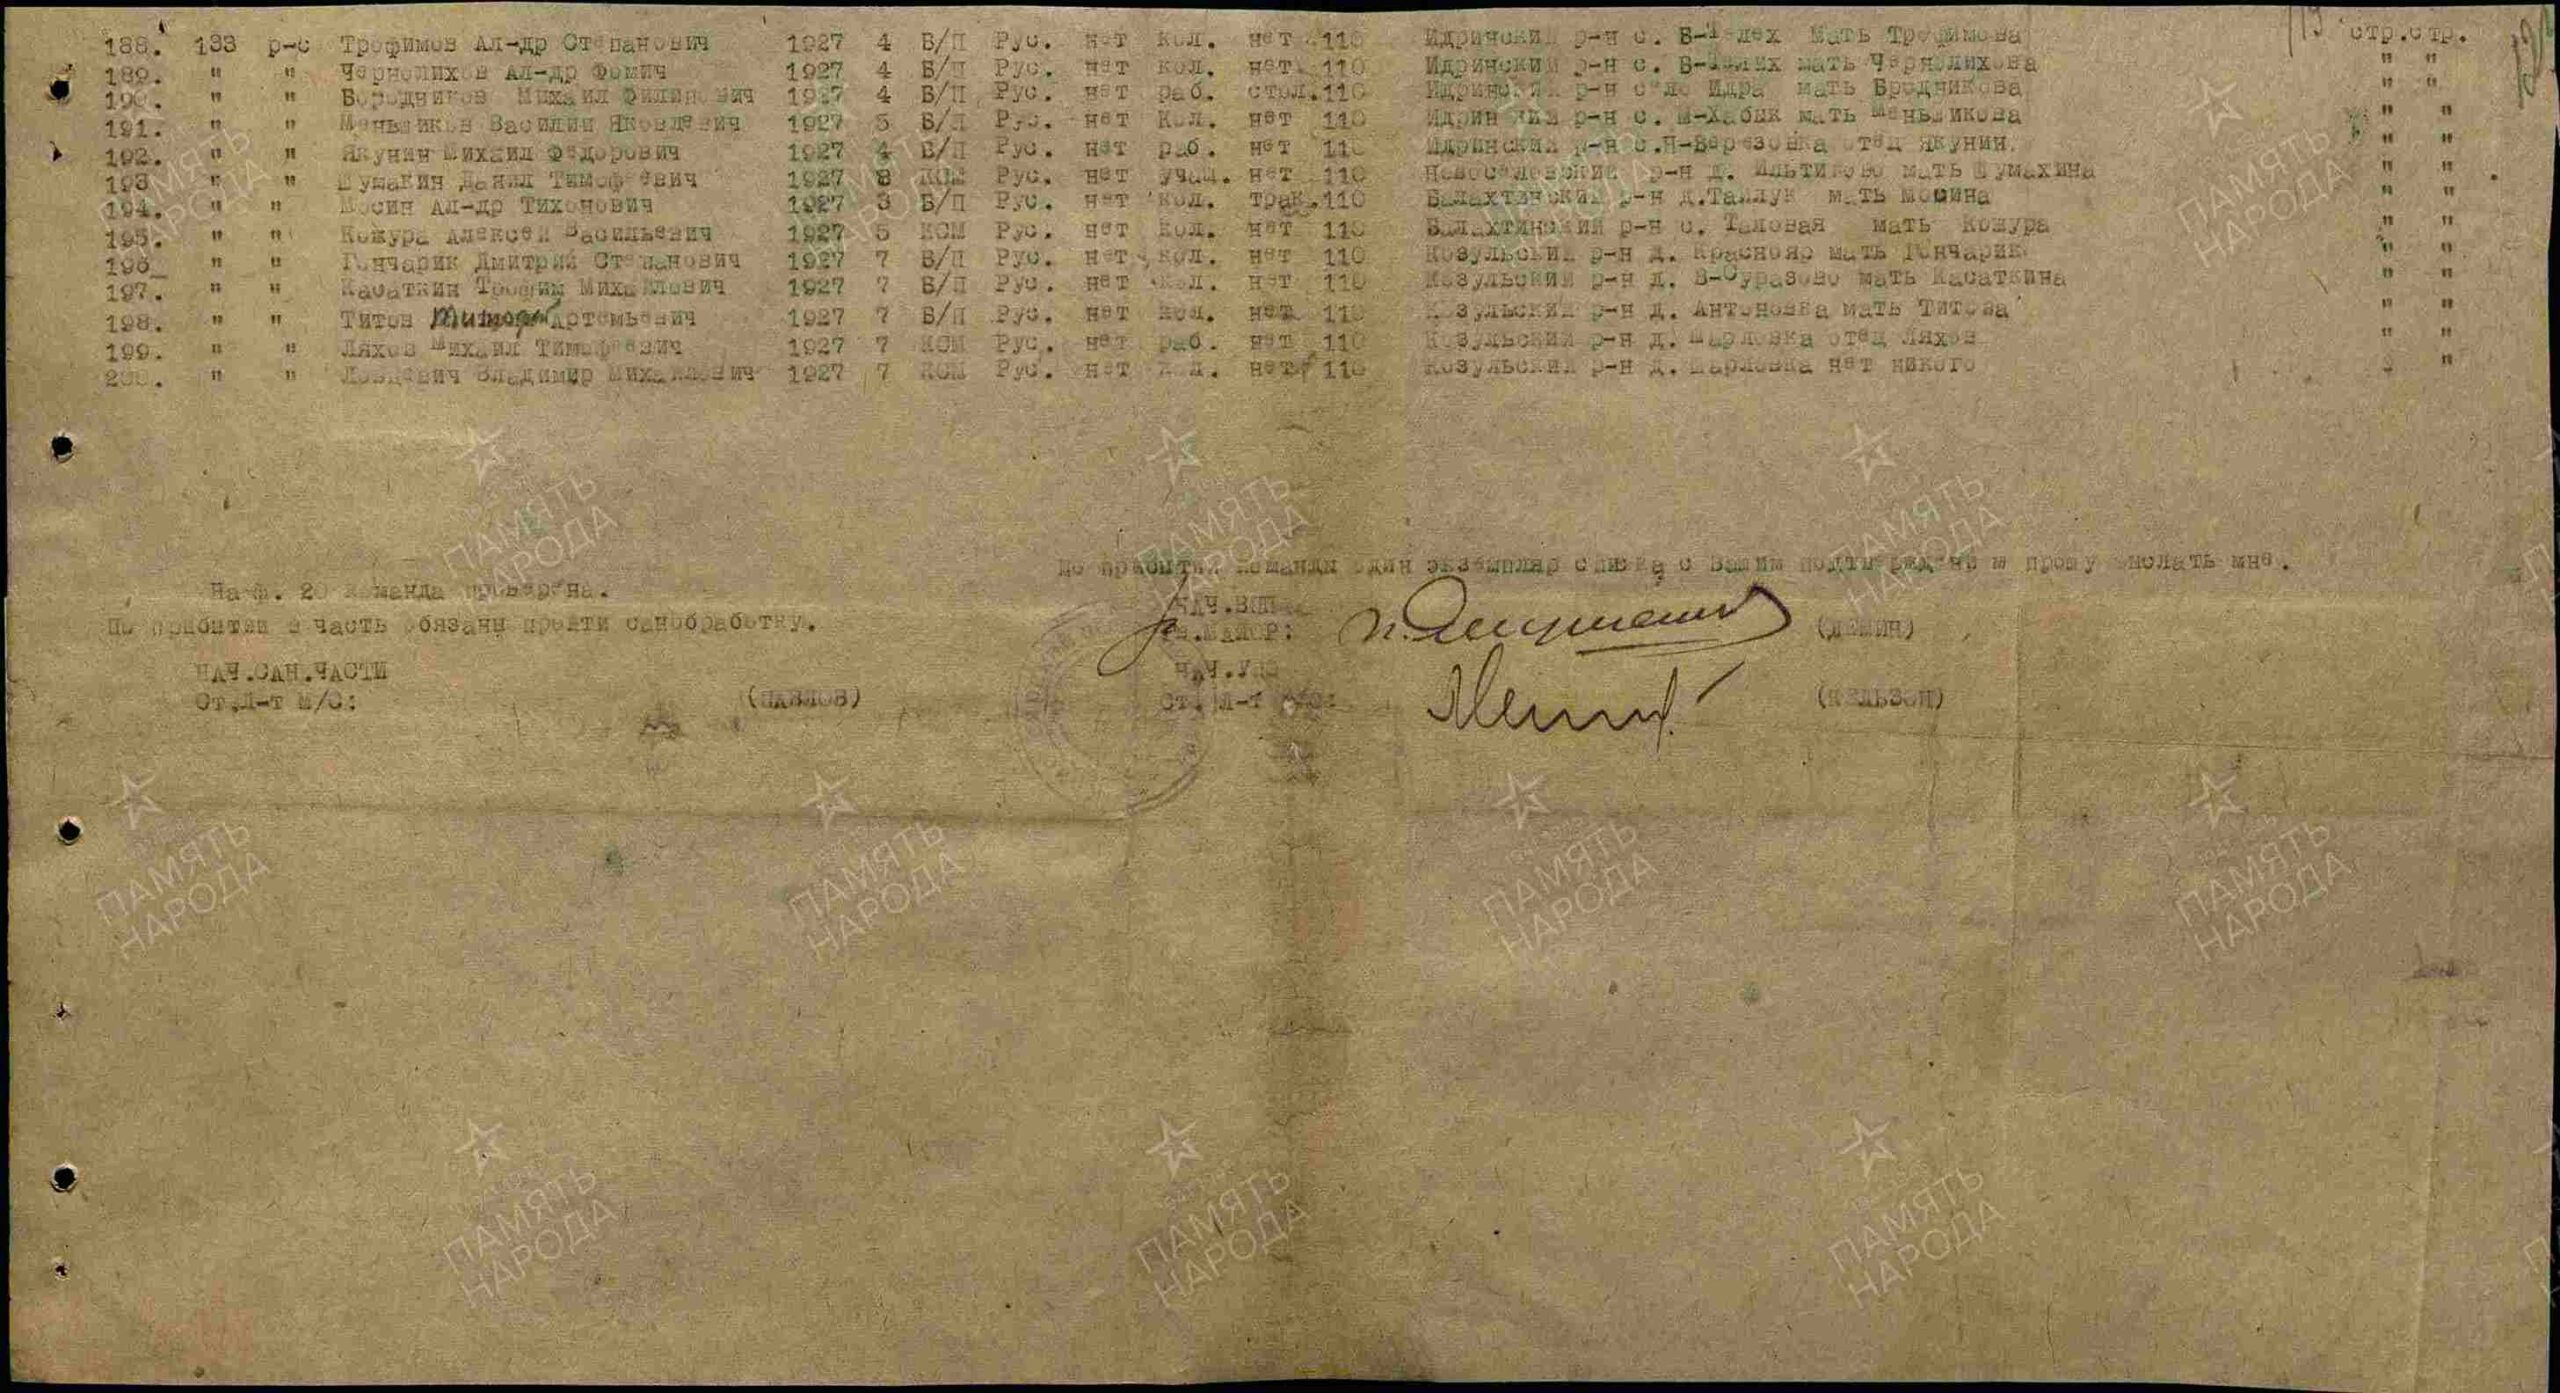 188. 133 р-с Трофимов Ал-др Степанович 1927 4 Б/П Рус. нет кол. нет 110 Идринский р-н с. В- мать Трофимова стр.стр.
189. " " Чернолихов Ал-др Фомич 1927 4 Б/П Рус. нет кол. нет 110 Идринский р-н с. В- мать Чернолихова " "
190. " " Бородчиков Михаил Филипович 1927 4 Б/П Рус. нет раб. стол. 110 Идринский р-н село Идра мать Бродчикова " "
191. " " Меньшиков Василий Яковлевич 1927 5 Б/П Рус. нет Кол. нет 110 Идринский р-н с. М-Хабык мать Меньшикова " "
192. " " Якунин Михаил Федорович 1927 4 Б/П Рус. нет раб. нет 110 Идринский р-н с.Н-Березовка отец Якунин. " "
193 " " Шумакин Данил Тимофеевич 1927 8 КСМ Рус. нет учащ. нет 110 Новоселовский р-н д. мать Шумахина " "
194. " " Мосин Ал-др Тихонович 1927 3 Б/П Рус. нет кол. трак. 110 Балахтинский р-н д. мать Мосина " "
195. " " Кожура Алексей Васильевич 1927 5 КСМ Рус. нет кол. нет 110 Балахтинский р-н с. Таловая мать Кожура " "
196 " " Гончарик Дмитрий Степанович 1927 7 Б/П Рус. нет кол. нет 110 Козульский р-н д. Краснояр мать Гончарик " "
197. " " Касаткин Трофим Михайлович 1927 7 Б/П Рус. нет кол. нет 110 Козульский р-н д. мать Касаткина " "
198. " " Титов Артемьевич 1927 7 Б/П Рус. нет кол. нет 110 Козульский р-н д. Антоновка мать Титова " "
199. " " Ляхов Михаил Тимофеевич 1927 7 КСМ Рус. нет раб. нет 110 Козульский р-н д. Шарловка отец Ляхов " "
200. " " Владимир Михайлович 1927 7 КСМ Рус. нет кол. нет 110 Козульский р-н д. Шарловка нет никого "
По прибытии команды один экземпляр списка с Вашим прошу выслать мне.
На ф. 20 команда проверена.
По прибытии в часть обязаны пройти санобработку.
НАЧ.САН.ЧАСТИ
Ст.Л-т М/С: (ПАВЛОВ)
НАЧ.ВПП
МАЙОР: (ДЕМИН)
НАЧ.
Ст. Л-т (НЕЛЬЗОН)
ПАМЯТЬ НАРОДА